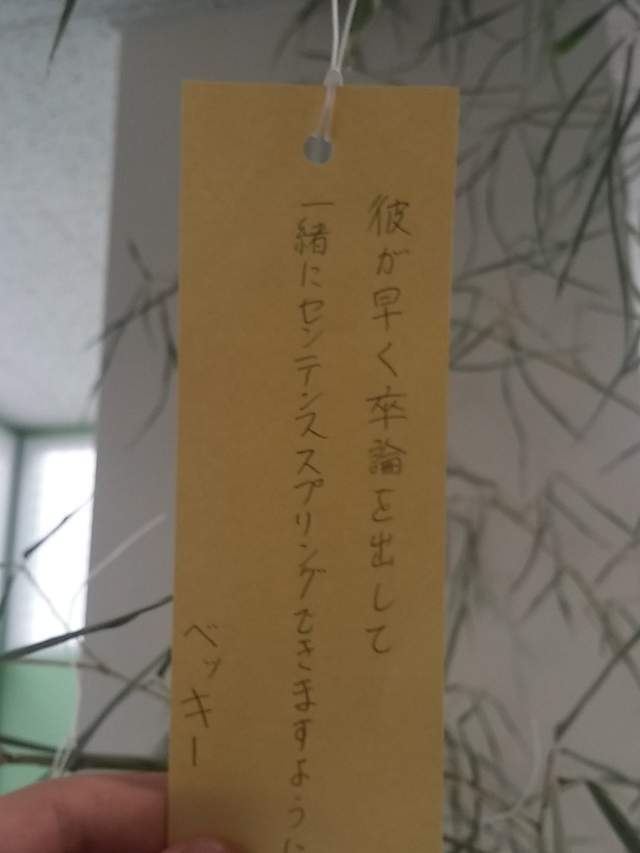 彼が早く卒論を出して
一緒にセンテンススプリングできますように
ベッキー